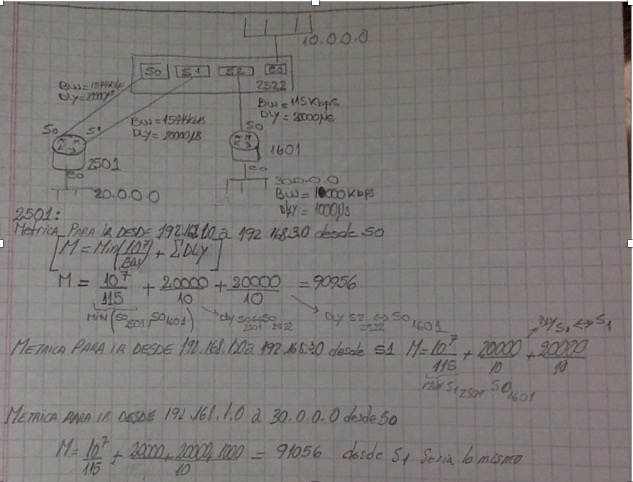 10.0.0.0
S0 S1 S2 e0
2522
BW=1544Kbps
DLY=20000µs
BW=1544Kbps
DLY=20000µs
BW=115Kbps
DLY=20000µs
S0 S1
S0
2501
1601
e0
e0
20.0.0.0
30.0.0.0
BW=10000Kbps
DLY=1000µs
2501:
Metrica PARA ir DESDE 192.168.1.0 a 192.168.3.0 desde S0
[M = Min(10⁷/BW) + ΣDLY]
M = 10⁷/115 + 20000/10 + 20000/10 = 90956
MIN(S0 2501, S0 1601) DLY S0 2501 ↔ S0 2522 DLY S2 2522 ↔ S0 1601
METRICA PARA IR DESDE 192.168.1.0 a 192.168.3.0 desde S1 M = 10⁷/115 + 20000/10 + 20000/10
DLY S1 ↔ S1
MIN S1 2501 S0 1601
METRICA PARA IR DESDE 192.168.1.0 a 30.0.0.0 desde S0
M = 10⁷/115 + 20000+20000+1000/10 = 91056 desde S1 seria lo mismo